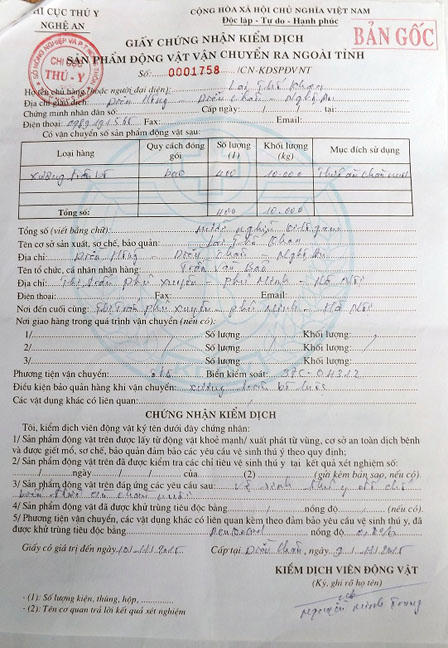 CHI CỤC THÚ Y
NGHỆ AN
CỘNG HÒA XÃ HỘI CHỦ NGHĨA VIỆT NAM
Độc lập - Tự do - Hạnh phúc
BẢN GỐC
GIẤY CHỨNG NHẬN KIỂM DỊCH
SẢN PHẨM ĐỘNG VẬT VẬN CHUYỂN RA NGOÀI TỈNH
CHI CỤC
THÚ - Y
Số: 0001758 /CN-KDSPĐVNT
Họ tên chủ hàng (hoặc người đại diện): Lại Thế
Địa chỉ giao dịch: Diễn Hồng - Diễn Châu - Nghệ An
Chứng minh nhân dân số: Cấp ngày / / tại:
Điện thoại: Fax: Email:
Có vận chuyển số sản phẩm động vật sau:
Loại hàng
Quy cách đóng gói
Số lượng (1)
Khối lượng (kg)
Mục đích sử dụng
bao 400 10.000 Thức ăn chăn nuôi
Tổng số: 400 10.000
Tổng số (viết bằng chữ): mười nghìn kilôgam
Tên cơ sở sản xuất, sơ chế, bảo quản: Lại Thế
Địa chỉ: Diễn Hồng - Diễn Châu - Nghệ An
Tên tổ chức, cá nhân nhận hàng: Trần Văn
Địa chỉ: Thị trấn Phú Xuyên - Phú Minh - Hà Nội
Điện thoại: Fax: Email:
Nơi đến cuối cùng: Thị trấn Phú Xuyên - Phú Minh - Hà Nội
Nơi giao hàng trong quá trình vận chuyển (nếu có):
1/ Số lượng / Khối lượng:
2/ Số lượng / Khối lượng:
3/ Số lượng / Khối lượng:
Phương tiện vận chuyển: ô tô Biển kiểm soát: 37C-04312
Điều kiện bảo quản hàng khi vận chuyển:
Các vật dụng khác có liên quan:
CHỨNG NHẬN KIỂM DỊCH
Tôi, kiểm dịch viên động vật ký tên dưới đây chứng nhận:
1/ Sản phẩm động vật trên được lấy từ động vật khoẻ mạnh/ xuất phát từ vùng, cơ sở an toàn dịch bệnh
và được giết mổ, sơ chế, bảo quản đảm bảo các yêu cầu vệ sinh thú y theo quy định;
2/ Sản phẩm động vật trên đã được kiểm tra các chỉ tiêu vệ sinh thú y tại kết quả xét nghiệm số:
/ ngày / / của (2) (gửi kèm bản sao, nếu có).
3/ Sản phẩm động vật trên đáp ứng các yêu cầu sau: vệ sinh thú y
4/ Sản phẩm vật đã được khử trùng tiêu độc bằng / nồng độ / (nếu có).
5/ Phương tiện vận chuyển, các vật dụng khác có liên quan kèm theo đảm bảo yêu cầu vệ sinh thú y, đã
được khử trùng tiêu độc bằng nồng độ
Giấy có giá trị đến ngày 10/11/2015 Cấp tại Diễn Châu, ngày /11/2015
KIỂM DỊCH VIÊN ĐỘNG VẬT
(Ký, ghi rõ họ tên)
Nguyễn Minh
- (1): Số lượng kiện, thùng, hộp,
- (2): Tên cơ quan trả lời kết quả xét nghiệm